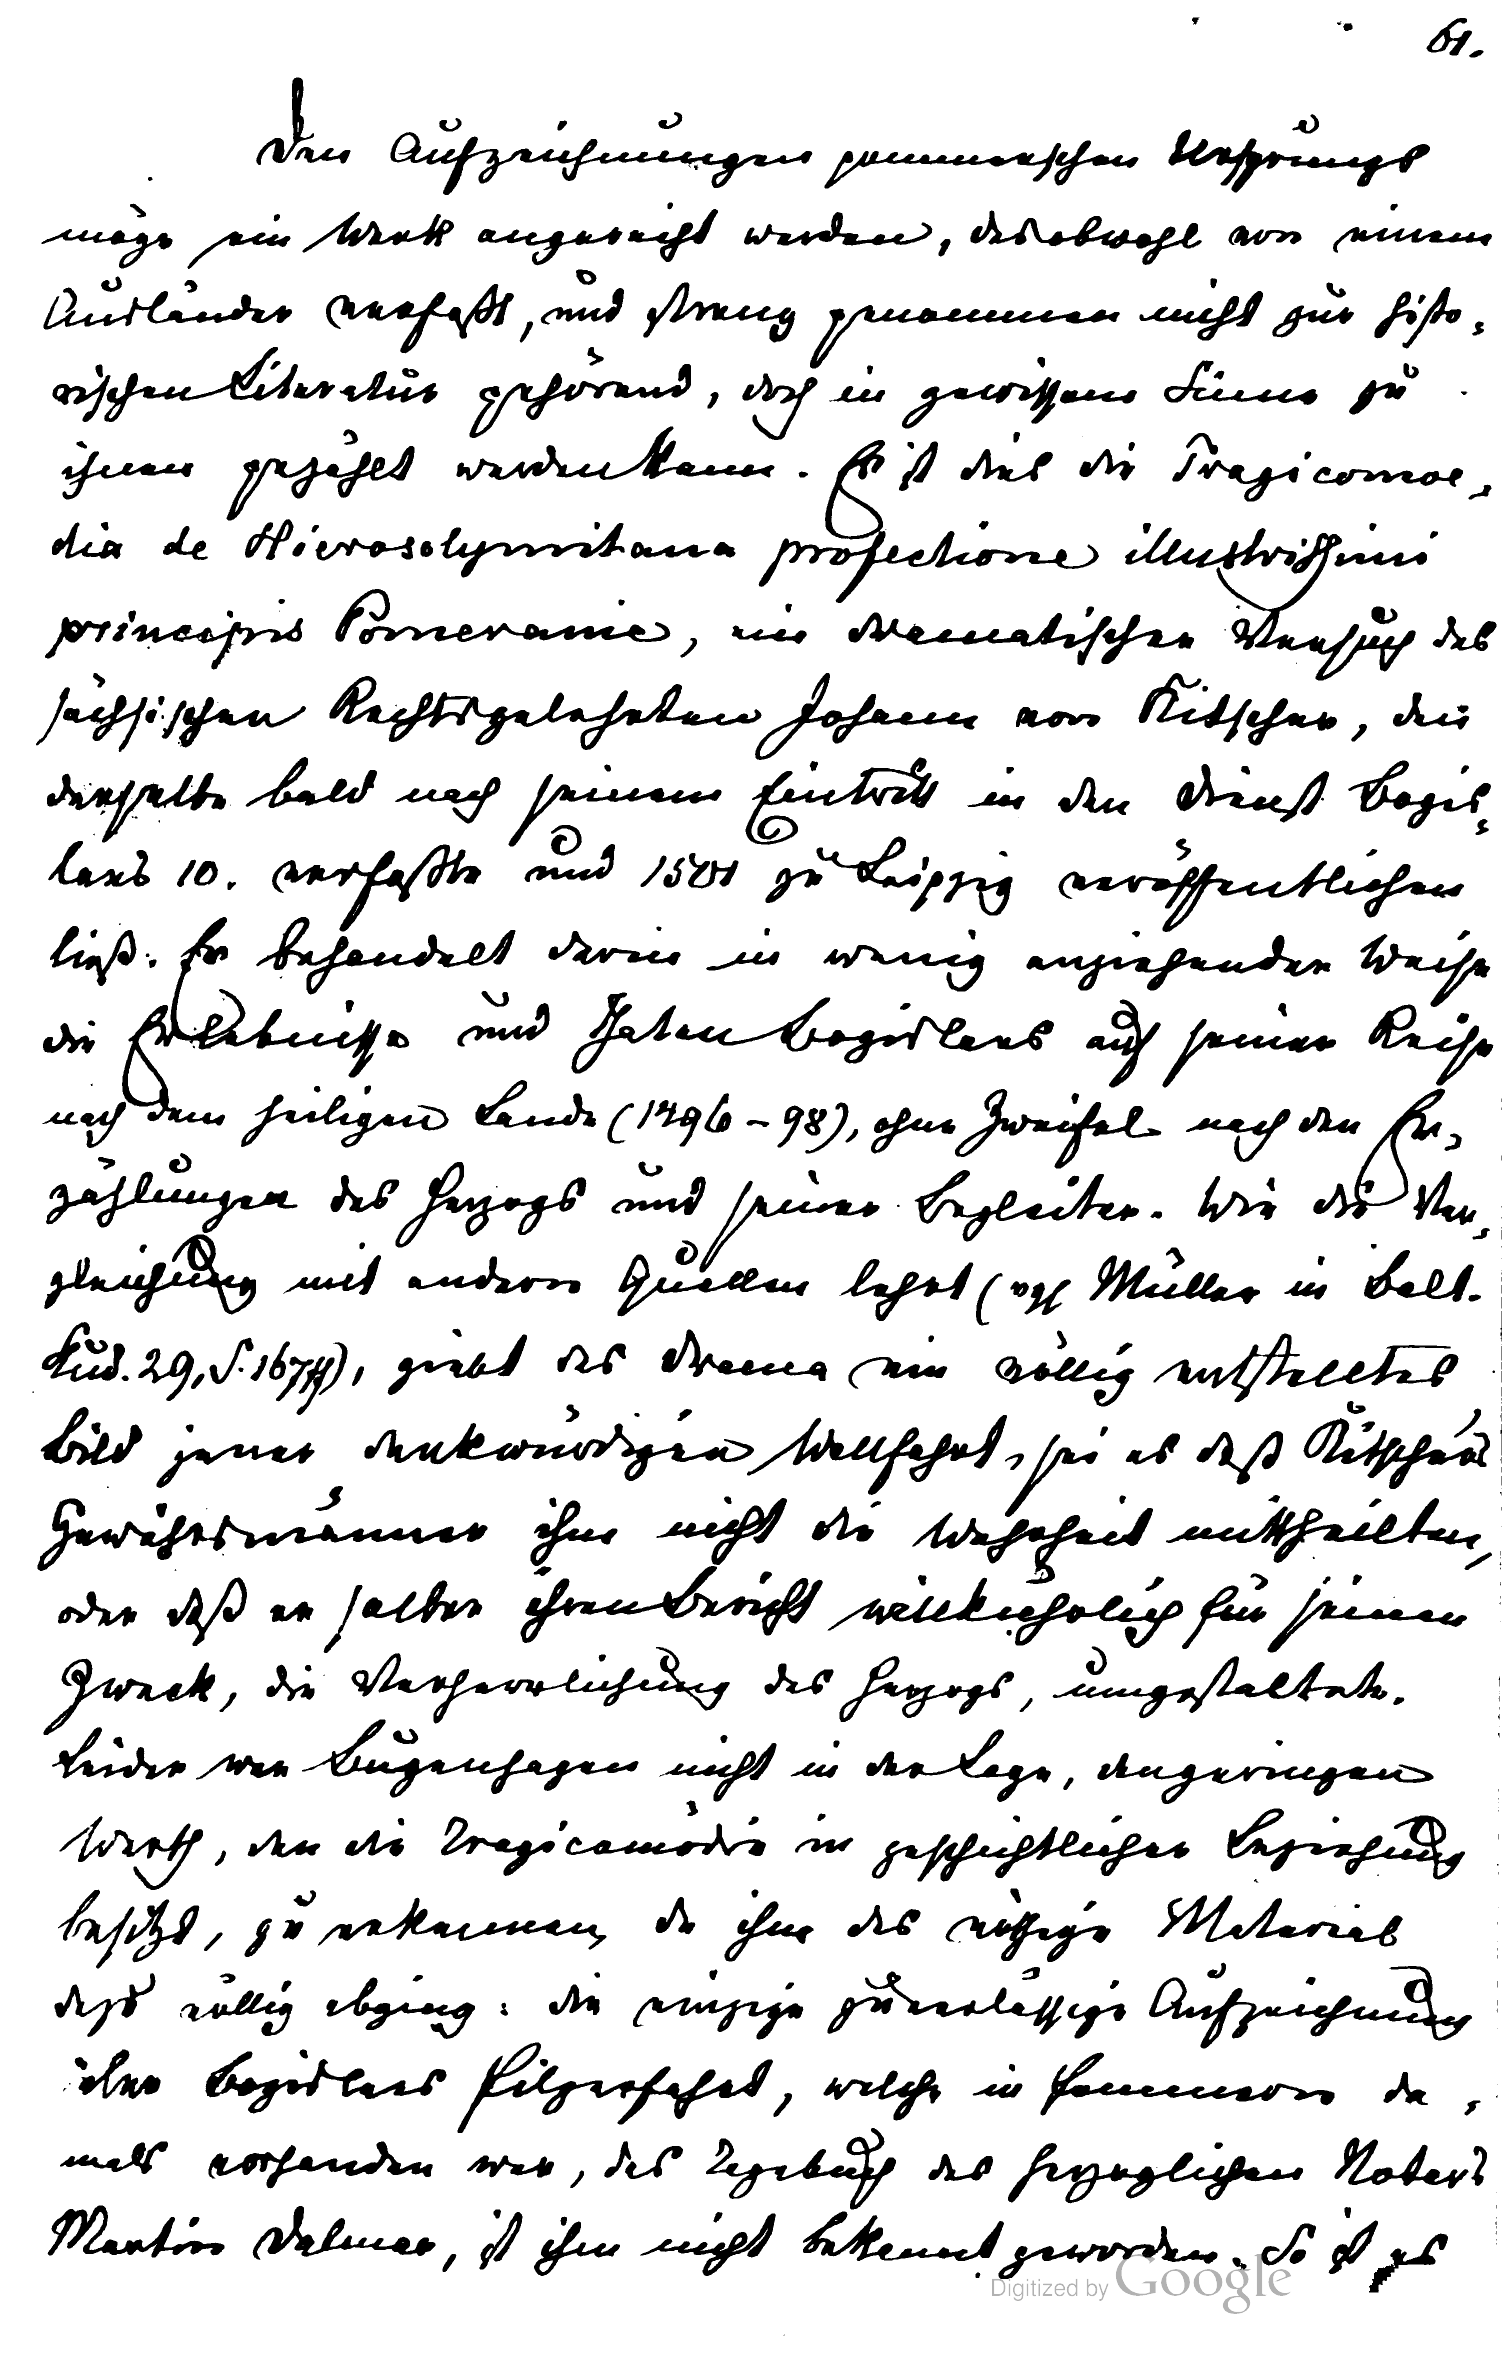 61.
Den Aufzeichnungen pommerschen Ursprungs
möge ein Werk angereiht werden, das obwohl von einem
Ausländer verfaßt, und streng genommen nicht zur histo-
rischen Literatur gehörend, doch in gewissem Sinne zu
ihnen gezählt werden kann. Es ist dies die Tragicomoe-
dia de Hierosolymitana profectione illustrissimi
principis Pomeranie, ein dramatischer Versuch des
sächsischen Rechtsgelehrten Johann von Kitscher, den
derselbe bald nach seinem Eintritt in den Dienst Bogis-
lavs 10. verfaßte und 1501 zu Leipzig veröffentlichen
ließ. Er behandelt darin in wenig anziehender Weise
die Erlebnisse und Thaten Bogislavs auf seiner Reise
nach dem heiligen Lande (1496-98), ohne Zweifel nach den Er-
zählungen des Herzogs und seiner Begleiter. Wie die Ver-
gleichung mit andern Quellen lehrt (vgl Müller in Balt.
Stud. 29, S. 167ff), giebt das Drama ein völlig entstelltes
Bild jener denkwürdigen Wallfahrt, sei es daß Kitscher's
Gewährsmänner ihm nicht die Wahrheit mittheilten,
oder daß er selber ihren Bericht willkührlich für seinen
Zweck, die Verherrlichung des Herzogs, umgestaltete.
Leider war Bugenhagen nicht in der Lage, den geringen
Werth, den die Tragicomödie in geschichtlicher Beziehung
besitzt, zu erkennen, da ihm das nöthige Material
dazu völlig abging: die einzige zuverlässige Aufzeichnung
über Bogislavs Pilgerfahrt, welche in Pommern da-
mals vorhanden war, das Tagebuch des herzoglichen Notars
Martin Dalmer, ist ihm nicht bekannt geworden. So ist es
Digitized by Google